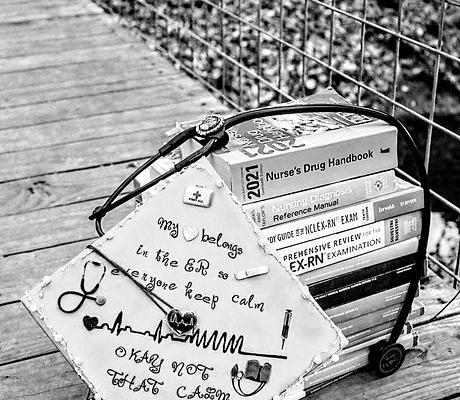 2021
2021
Nurse's Drug Handbook
Nursing Diagnosis
Reference Manual
STUDY GUIDE for the NCLEX-RN® EXAM
PREHENSIVE REVIEW for the
EX-RN® EXAMINATION
My belongs
in the ER so
everyone keep calm
OKAY NOT
THAT CALM